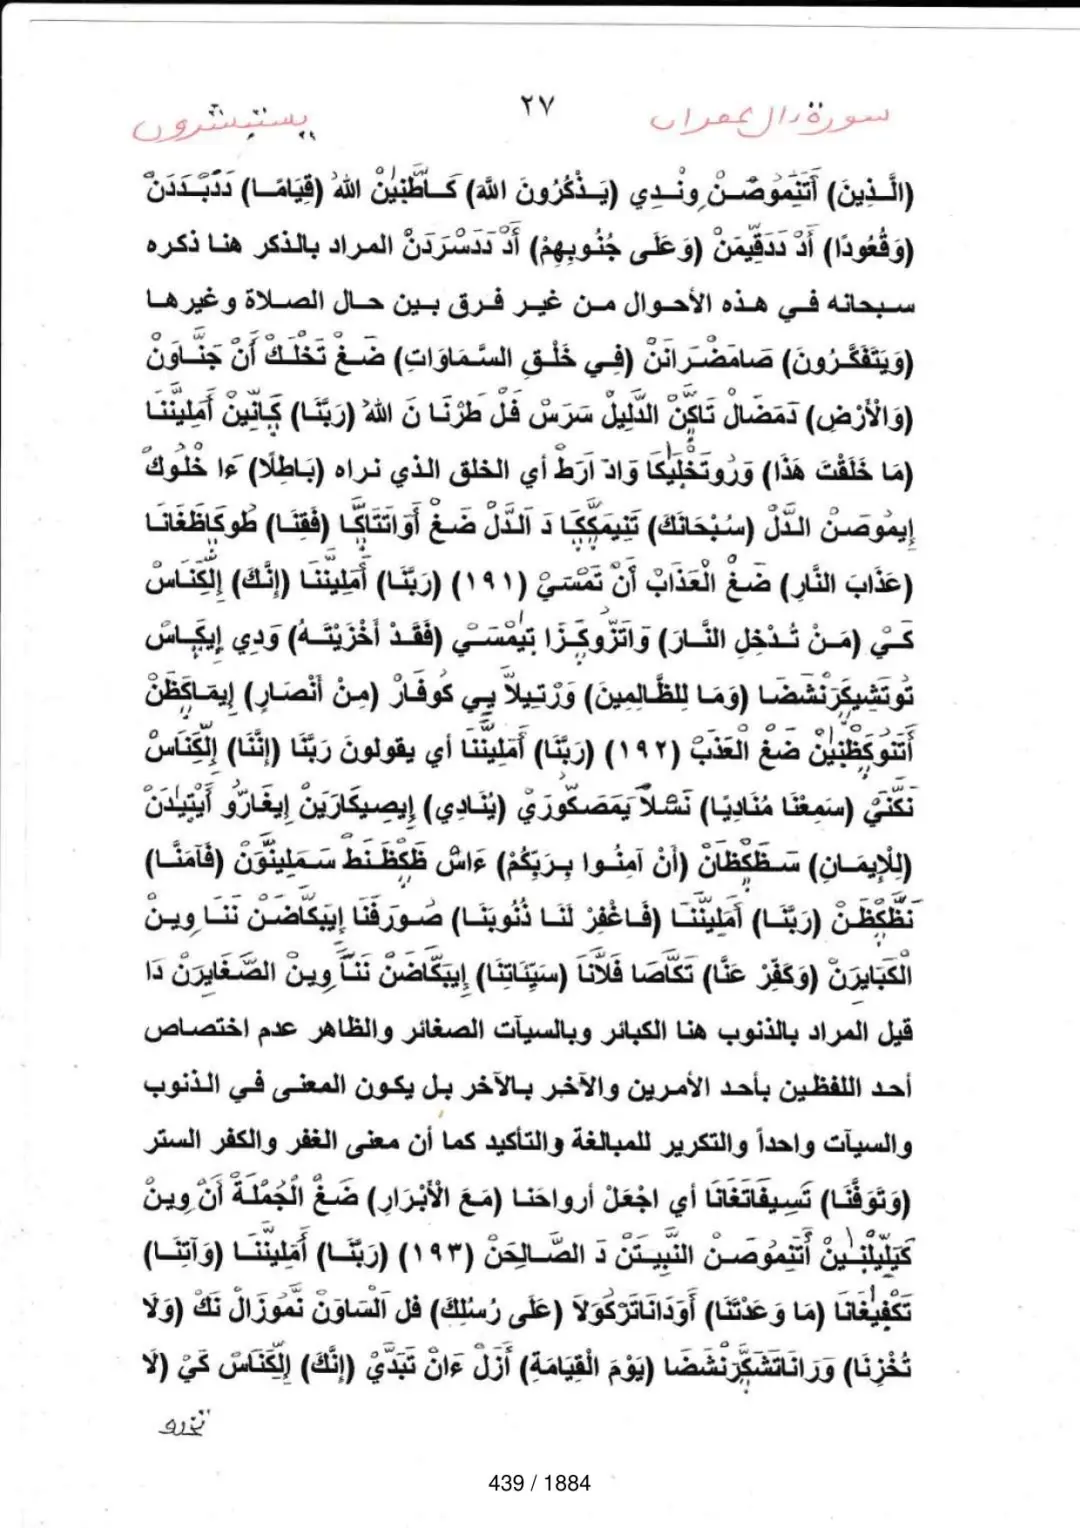 سورة ءال عمران ٢٧ يستبشرون
(الَّذِينَ) أَتَنِمُوصَنْ وِنْدِي (يَذْكُرُونَ اللَّهَ) كَـأَطَّنِينْ اللهُ (قِيَامًا) دَدْبَدَدَنْ
(وَقُعُودًا) أَدْ دَدَقِّيمَنْ (وَعَلَى جُنُوبِهِمْ) أَدْ دَدَسْرَدَنْ المراد بالذكر هنا ذكره
سبحانه في هذه الأحوال من غير فرق بين حال الصلاة وغيرها
(وَيَتَفَكَّرُونَ) صَامَضْرَانَنْ (فِي خَلْقِ السَّمَاوَاتِ) ضَغْ تَخْلَكْ أَنْ جَنَّاوَنْ
(وَالْأَرْضِ) دَمَضَالْ تَاكَنْ الدَّلِيلْ سَرَسْ فَلْ طَرْنَا نَ اللهُ (رَبَّنَا) كَانِّينْ أَمَلِينَنَا
(مَا خَلَقْتَ هَذَا) وَرُوتَخْلِيكَا وَادْ أَرَطْ أي الخلق الذي نراه (بَاطِلًا) ءَا خْلُوكْ
إِيمُوصَنْ الدَّلْ (سُبْحَانَكَ) تَنِيمَكَّكَا دَ آلدَّلْ ضَغْ أَوَاتَتَاكَّا (فَقِنَا) طُوكَاظَغَانَا
(عَذَابَ النَّارِ) ضَغْ الْعَذَابْ أَنْ تَمْسَيْ (١٩١) (رَبَّنَا) أَمَلِينَنَا (إِنَّكَ) إِلْكَنَاسْ
كَيْ (مَنْ تُدْخِلِ النَّارَ) وَاتَزُّوكَزَا تِيمْسَيْ (فَقَدْ أَخْزَيْتَهُ) وَدِي إِيكَاسْ
تُوتَشِيكَرَنْشَضَا (وَمَا لِلظَّالِمِينَ) وَرْتِيلاَ يِي كُوفَارْ (مِنْ أَنْصَارٍ) إِيمَاكَظَنْ
أَتَنُوكَظْنِينْ ضَغْ الْعَذَبْ (١٩٢) (رَبَّنَا) أَمَلِينَنَا أي يقولون رَبَّنَا (إِنَّنَا) إِلْكَنَاسْ
نَكَنَيْ (سَمِعْنَا مُنَادِيًا) نَسْلاَ يَمَصَكُورَيْ (يُنَادِي) إِيصِيكَارَيَنْ إِيغَارُو أَيْتِيدَنْ
(لِلْإِيمَانِ) سَظَكْظَانْ (أَنْ آمِنُوا بِرَبِّكُمْ) ءَاسْ ظَكْظَنَطْ سَمَلِينَّوَنْ (فَآمَنَّا)
نَظَّكْظَنْ (رَبَّنَا) أَمَلِينَنَا (فَاغْفِرْ لَنَا ذُنُوبَنَا) صُورَفَنَا إِيبَكَّاضَنْ نَنَا وِينْ
الْكَبَايِرَنْ (وَكَفِّرْ عَنَّا) تَكَّاصَا فَلَّانَا (سَيِّئَاتِنَا) إِيبَكَّاضَنْ نَنَا وِينْ الصَّغَايِرَنْ دَا
قيل المراد بالذنوب هنا الكبائر وبالسيآت الصغائر والظاهر عدم اختصاص
أحد اللفظين بأحد الأمرين والآخر بالآخر بل يكون المعنى في الذنوب
والسيآت واحداً والتكرير للمبالغة والتأكيد كما أن معنى الغفر والكفر الستر
(وَتَوَفَّنَا) تَسِيفَاتَغَانَا أي اجْعَلْ أرواحَنا (مَعَ الْأَبْرَارِ) ضَغْ الْجُمْلَةْ أَنْ وِينْ
كَيَلِيلْنِينْ أَتَنِمُوصَنْ النَّبِيتَنْ دَ الصَّالِحَنْ (١٩٣) (رَبَّنَا) أَمَلِينَنَا (وَآتِنَا)
تَكْفِيغَانَا (مَا وَعَدْتَنَا) أَوَدَانَاتَرْكُولَا (عَلَى رُسُلِكَ) فل الْسَاوَنْ نَّمُوزَالْ نَكْ (وَلَا
تُخْزِنَا) وَرَانَاتَشَكَّرَنْشَضَا (يَوْمَ الْقِيَامَةِ) أَزَلْ ءَانْ تَبَدَّيْ (إِنَّكَ) إِلْكَنَاسْ كَيْ (لَا
439 / 1884